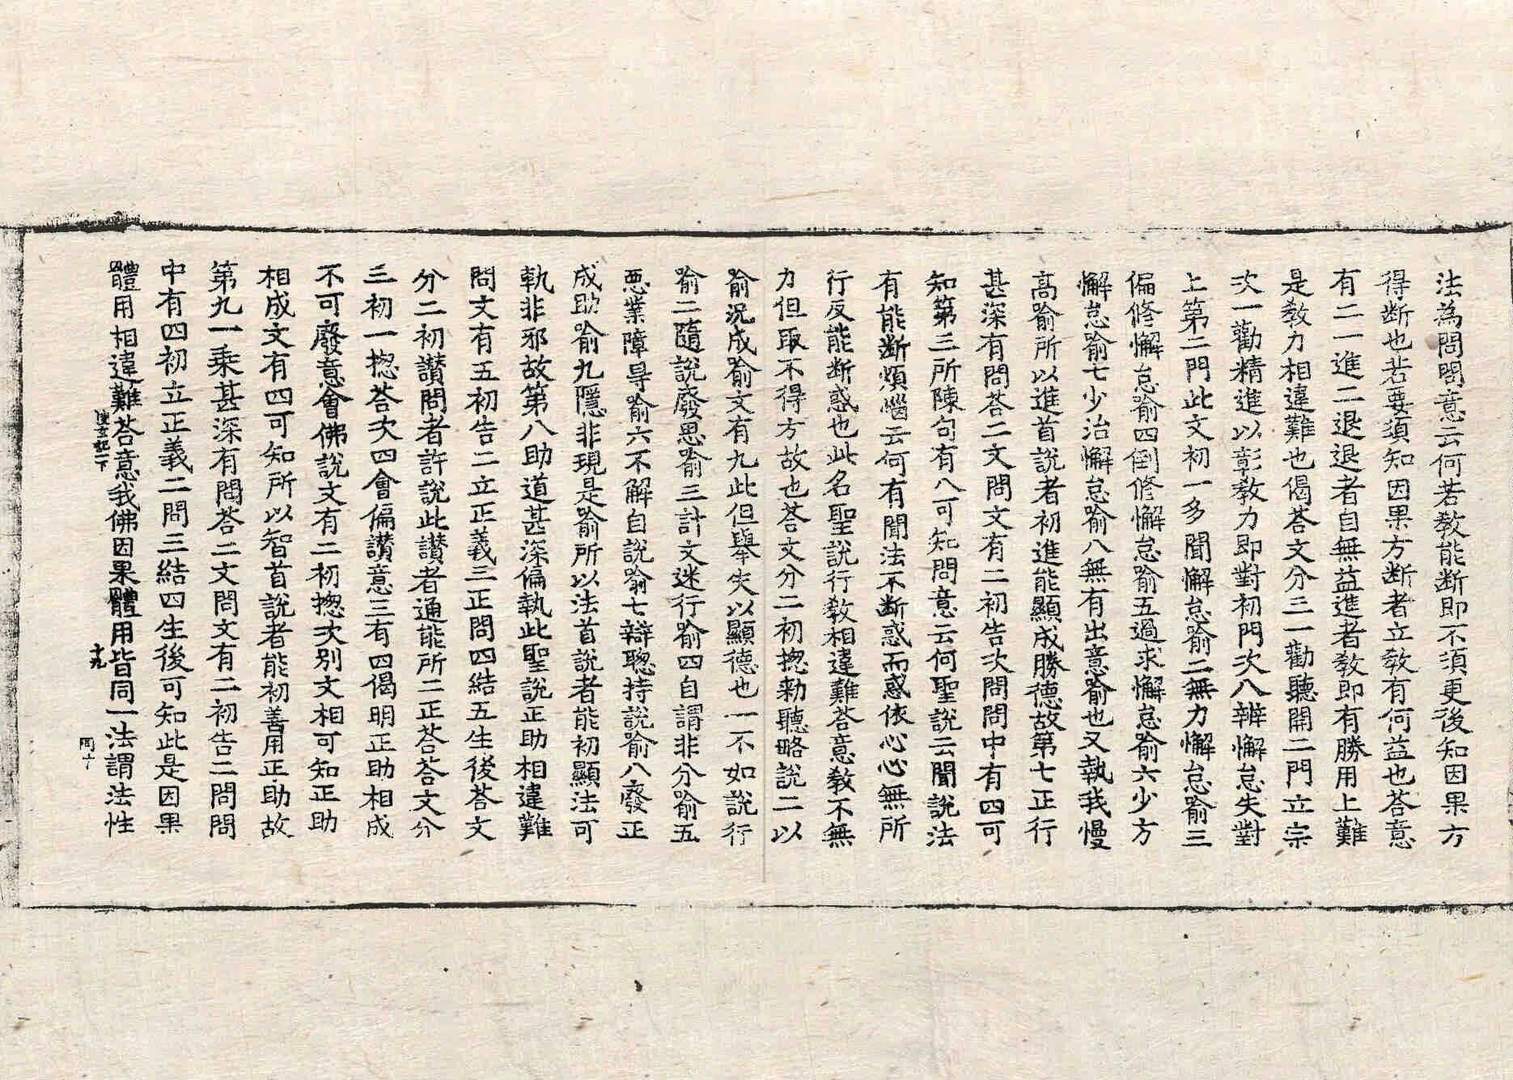 法為問問意云何若教能断即不須更後知因果方
得断也若要須知因果方断者立教有何益也荅意
有二一進二退退者自無益進者教即有勝用上難
是教力相違難也偈荅文分三一勸聽開二門立宗
次一勸精進以彰教力即對初門次八辨懈怠失對
上第二門此文初一多聞懈怠喻二無力懈怠喻三
偏修懈怠喻四倒修懈怠喻五過求懈怠喻六少方
懈怠喻七少治懈怠喻八無有出意喻也又執我慢
高喻所以進首說者初進能顯成勝德故第七正行
甚深有問荅二文問文有二初告次問問中有四可
知第三所陳句有八可知問意云何聖說云聞說法
有能断煩惱云何有聞法不断惑而惑依心心無所
行反能断惑也此名聖說行教相違難荅意教不無
力但取不得方故也荅文分二初揔勑聽略說二以
喻況成喻文有九此但舉失以顯德也一不如說行
喻二隨說廢思喻三計文迷行喻四自謂非分喻五
惡業障㝵喻六不解自說喻七辯聦持說喻八廢正
成助喻九隱非現是喻所以法首說者能初顯法可
軌非邪故第八助道甚深偏執此聖說正助相違難
問文有五初告二立正義三正問四結五生後荅文
分二初讃問者許說此讃者通能所二正荅荅文分
三初一揔荅次四會偏讃意三有四偈明正助相成
不可廢意會佛說文有二初揔次別文相可知正助
相成文有四可知所以智首說者能初善用正助故
第九一乘甚深有問荅二文問文有二初告二問問
中有四初立正義二問三結四生後可知此是因果
體用相違難荅意我佛因果體用皆同一法謂法性
十九
同十